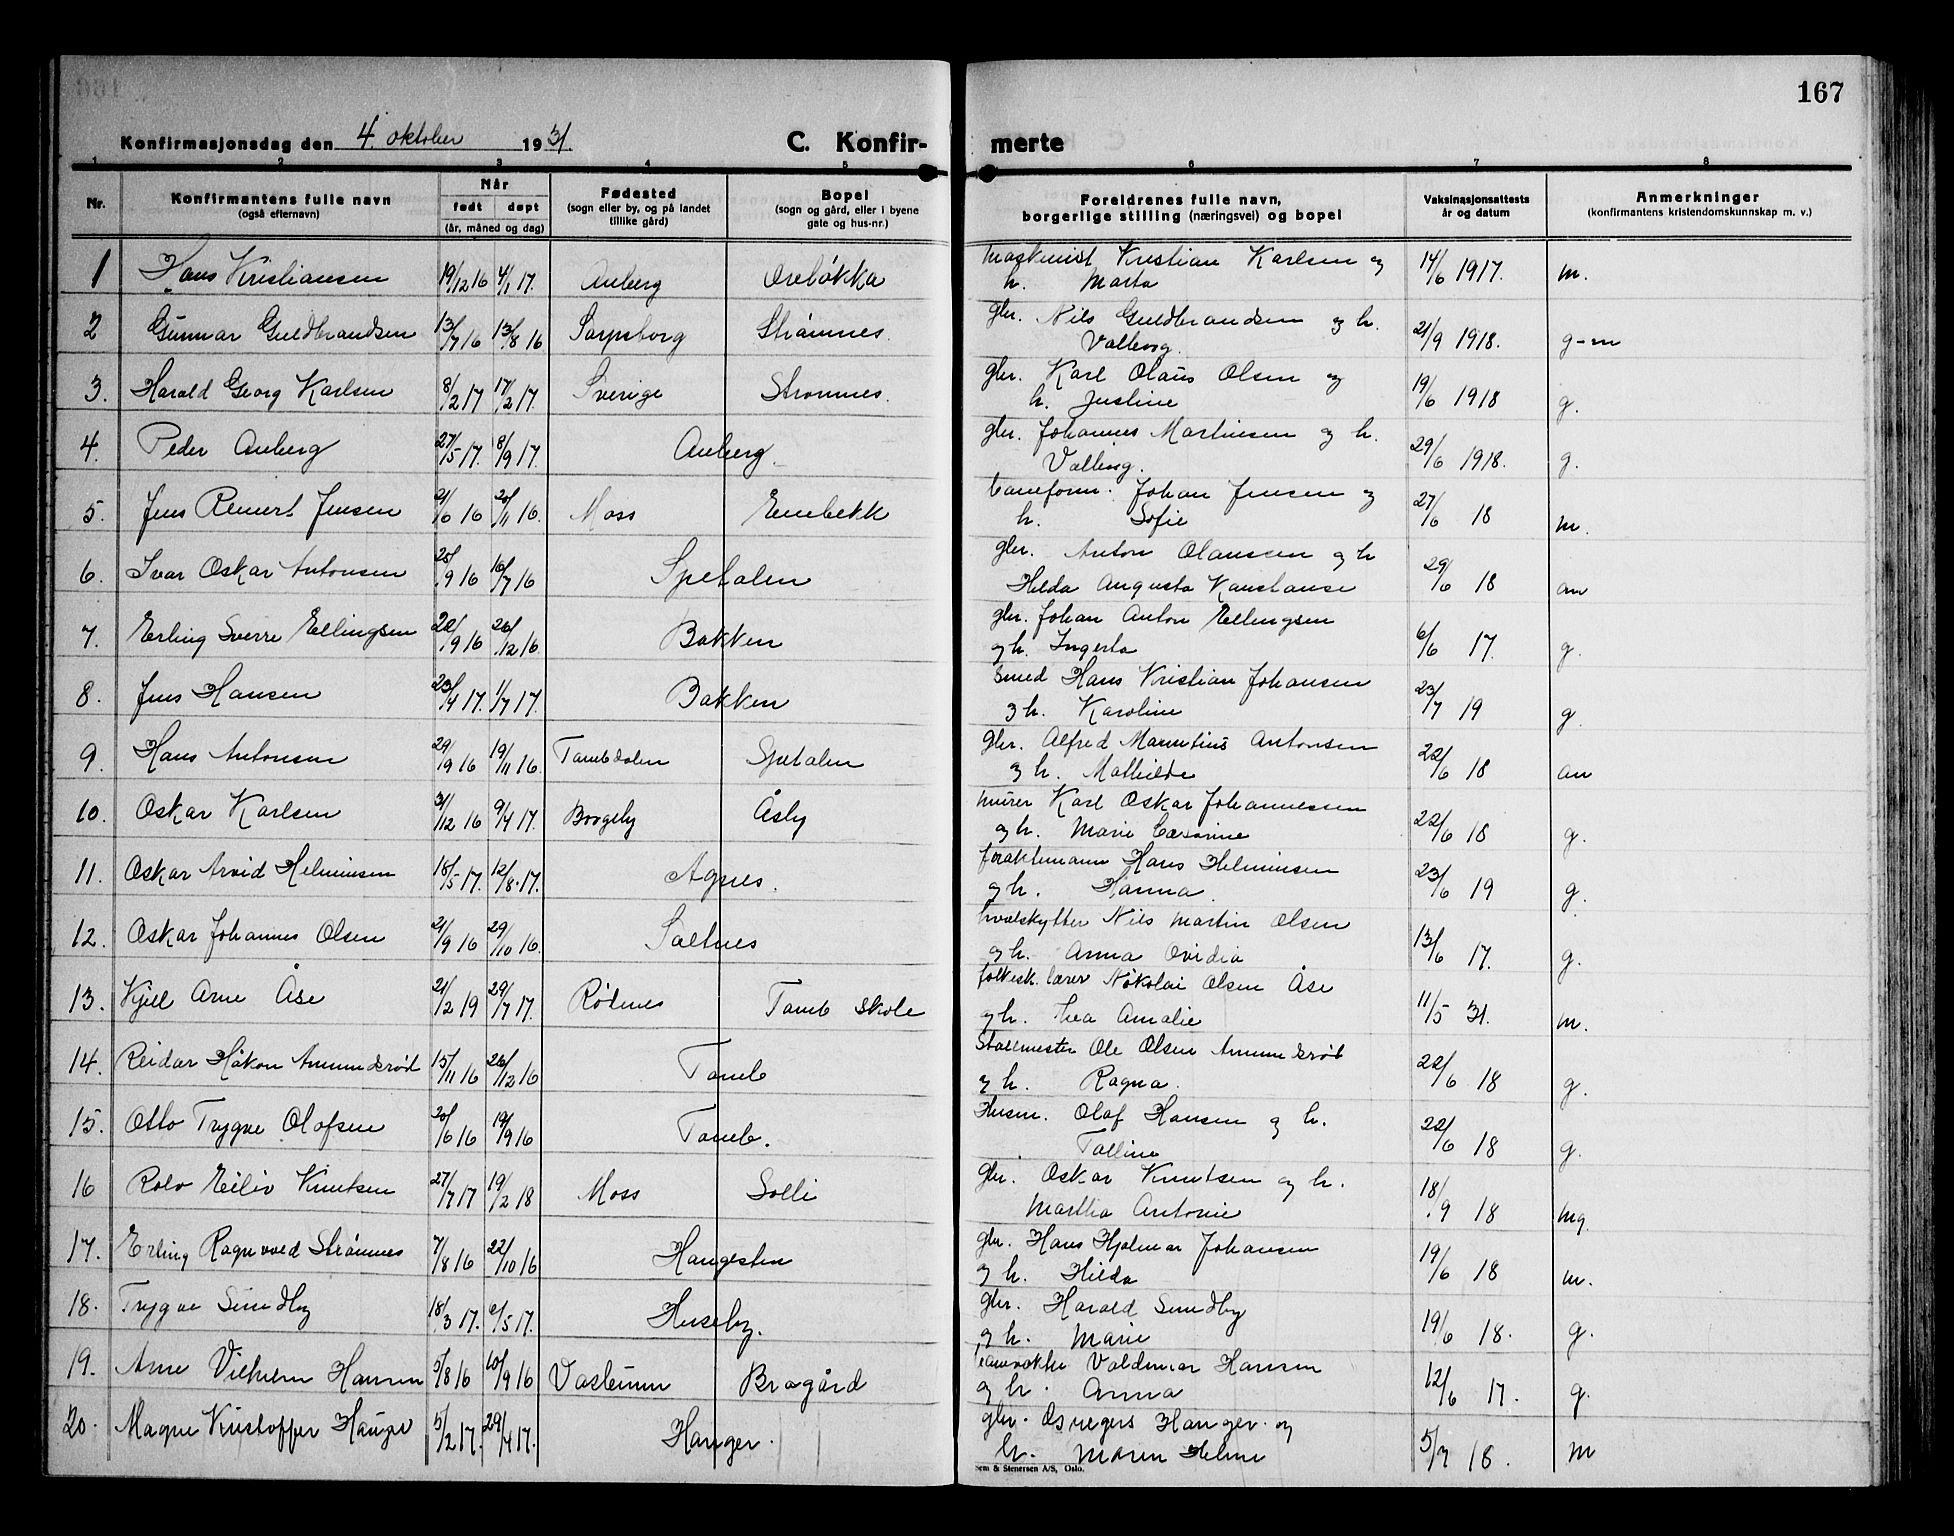 167
Konfirmasjonsdag den 4. oktober 1931. C. Konfir-merte
1 2 3 4 5 6 7 8
Nr. Konfirmantens fulle navn (også efternavn) Når født døpt (år, måned og dag) Fødested (sogn eller by, og på landet tillike gård) Bopel (sogn og gård, eller i byene gate og hus-nr.) Foreldrenes fulle navn, borgerlige stilling (næringsvei) og bopel Vaksinasjonsattests år og datum Anmerkninger (konfirmantens kristendomskunnskap m. v.)
1 Hans Kristiansen 19/12 16 4/1 17. Auberg Oreløkka Maskinist Kristian Karlsen og
h. Marta 14/6 1917. m.
2 Gunnar Guldbrandsen 13/7 16 13/8 16 Sarpsborg Strømnes. gbr. Nils Guldbrandsen og h.
Valborg. 21/9 1918. g-m
3. Harald Georg Karlsen 8/2 17 17/2 17. Sverige Strømnes. gbr. Karl Olaus Olsen og
h. Justine 19/6 1918 g.
4. Peder Auberg 27/5 17. 8/9 17. Auberg. gbr. Johannes Martinsen og h.
Valborg. 29/6 1918. g.
5. Jens Reinert Jensen 21/10 16 20/11 16. Moss Enebekk Johan Jensen og
h. Sofie 27/6 18 m.
6. Ivar Oskar Antonsen 16/7 16 Spetalen gbr. Anton Olaussen og h
Hilda Augusta Konstanse 29/6 18
7. Erling Sverre Ellingsen 20/9 16 26/12 16 Bakken gbr. Johan Anton Ellingsen
og h. Ingerta 6/6 17. g.
8. Jens Hansen 23/4 17. 1/7 17. Bakken Smed Hans Kristian Johansen
og h. Karoline 23/7 19 g.
9. Hans Antonsen 29/9 16 19/11 16. Tombdalen Spetalen gbr. Alfred Mauritius Antonsen
og h. Mathilde 22/6 18
10. Oskar Karlsen 31/12 16 9/4 17. Borgeby Åsby murer Karl Oskar Johannessen
og h. Marie 22/6 18 g.
11. Oskar Arvid Helminsen 18/5 17. 12/8. 17. Agnes. fraktemann Hans Helminsen
og h. Hanna 23/6 19 g.
12. Oskar Johannes Olsen 21/9 16 29/10 16. Saltnes hvalskytter Nils Martin Olsen
og h. Anna Ovidia 13/6 17. g.
13. Kjell Arne Åse 21/2 19 29/7 17. Rødenes Tomb skole folkesk. lærer Nikolai Olsen Åse
og h. Thea Amalie 11/5 31. m.
14. Reidar Håkon Amundsrød 15/11 16 26/12 16 Tomb Stallmester Ole Olsen Amundsrød
og h. Ragna. 22/6 18 g.
15. Otto Trygve Olofsen 20/6 16 19/9 16 Tomb. Husm. Olaf Hansen og h.
Talline 22/6 18 g.
16 Rolv Eiliv Knutsen 27/7 17 19/2 18 Moss Solli gbr. Oskar Knutsen og h.
Martha Antonie 18/9 18 mg
17. Erling Ragnvold Strømnes 7/8 16 22/10 16 Haugesten gbr. Hans Hjalmar Johansen
og h. Hilda 19/6 18 m.
18. Trygve Sundby 18/3 17. 6/5 17. Huseby. gbr. Harald Sundby
og h. Marie 19/6 18. g.
19. Arne Vilhelm Hansen 5/8 16 10/9 16 Vasteum Brogård Valdemar Hansen
og h. Anna 12/6 17. g.
20. Magne Kristoffer Hauge 5/2 17. 29/4 17. Hauger. gbr. Hauger. og
h. Maren Helene 5/7 18. m
Sem & Stenersen A/S, Oslo.